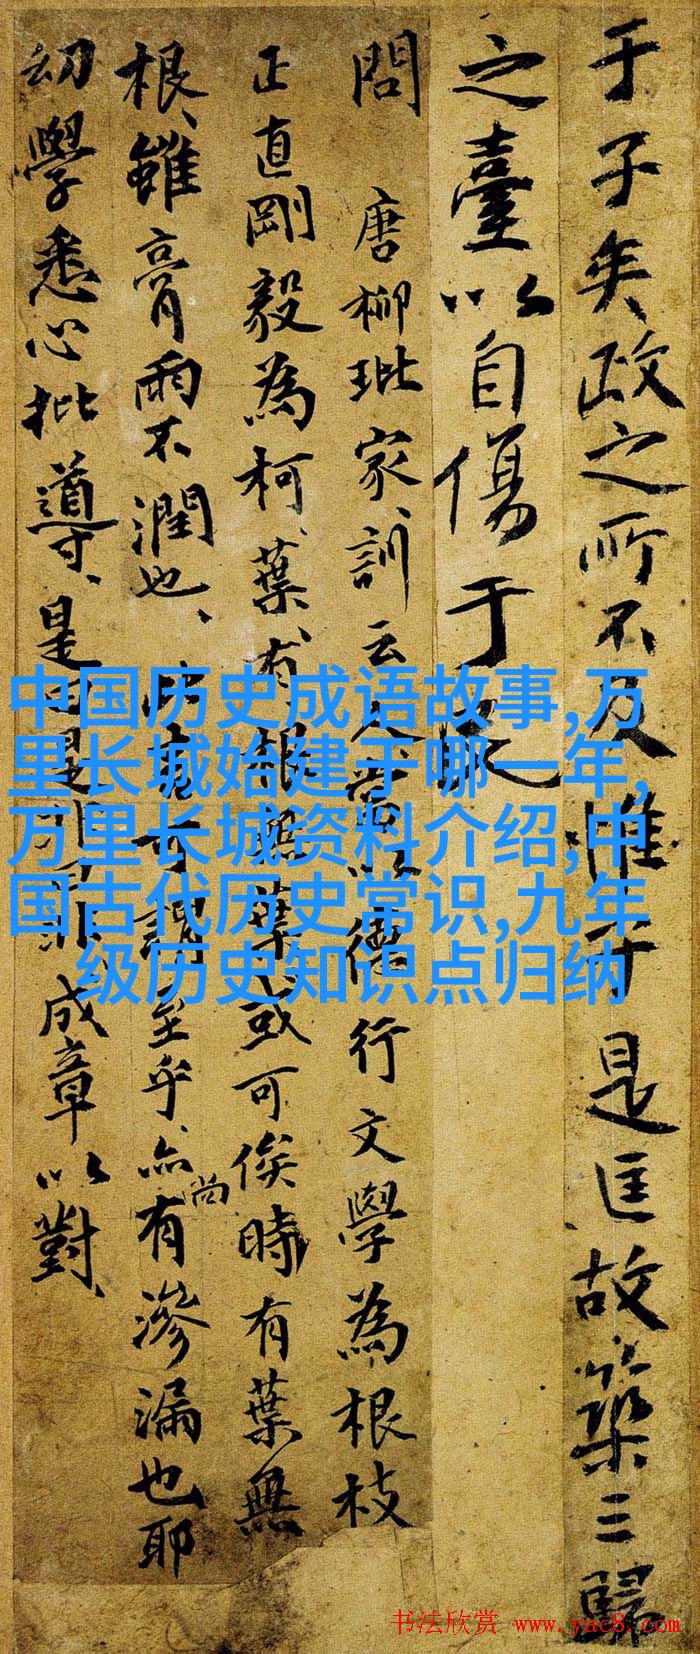 于子矣政之所不及惟子是匡故築三歸
之臺以自傷于民
問 唐柳玭家訓云人當以德行文學為根枝
正直剛毅為柯、葉、有根無葉或可俟時有葉無
根、雖膏雨不潤也、此言可謂至乎、亦尚有滲漏也耶
幼學悉心批導、是曰是非曰非成章以對、
中国历史成语故事,万
里长城始建于哪一年,
万里长城资料介绍,中
国古代历史常识,九年
级历史知识点归纳
书法欣赏 www.yac8.com